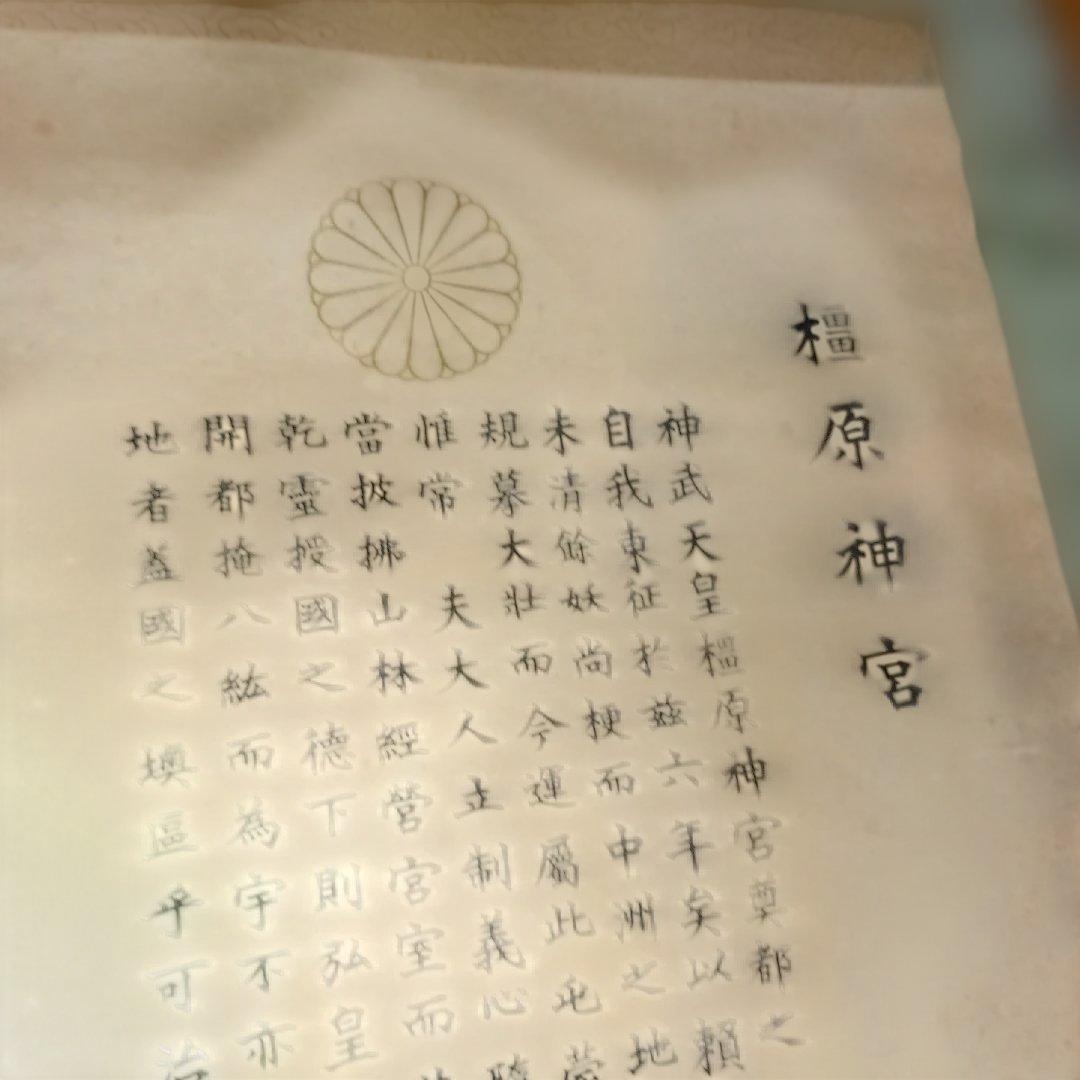 橿原神宮
神武天皇橿原神宮奠都之
自我東征於茲六年矣以賴
未清餘妖尚梗而中洲之地
規摹大壯而今運屬此屯蒙
惟常 夫大人立制義心隨
當披拂山林經營宮室而
乾靈授國之德下則弘皇
開都掩八紘而為宇不亦
地者蓋國之墺區乎可治